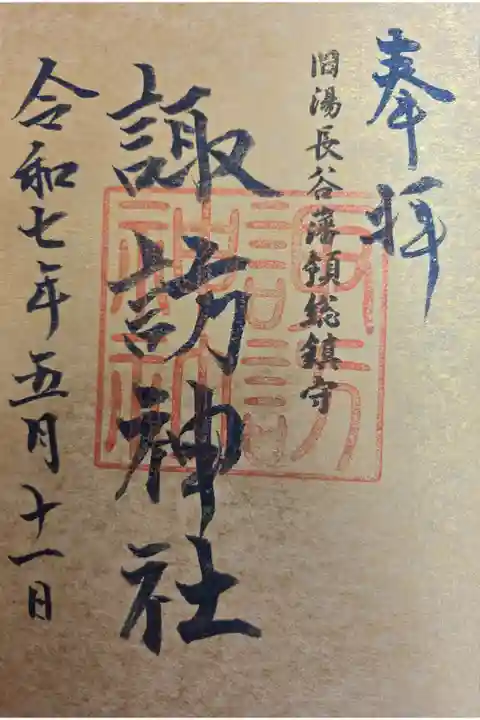 奉拝
旧湯長谷藩領総鎮守
諏訪神社
諏訪神社
令和七年五月十一日